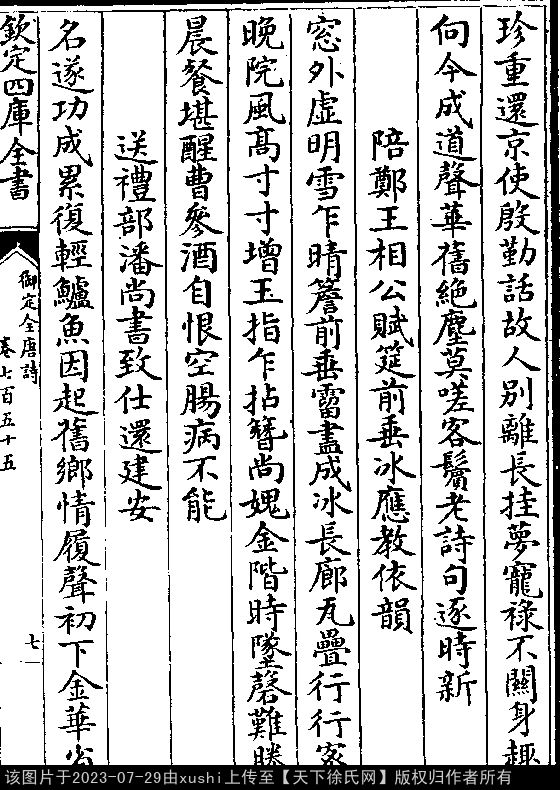 珍重還京使殷勤話故人别離長挂夢寵禄不關身趣
向今成道聲華舊絶塵莫嗟客鬢老詩句逐時新
陪鄭王相公賦筵前垂冰應教依韻
窓外虚明雪乍晴簷前垂霤盡成冰長廊瓦疊行行宻
晩院風髙寸寸增玉指乍拈簪尚媿金階時墜磬難勝
晨餐堪醒曹參酒自恨空腸病不能
送禮部潘尚書致仕還建安
名遂功成累復輕鱸魚因起舊鄉情履聲初下金華省
欽定四庫全書
御定全唐詩
卷七百五十五
七
该图片于2023-07-29由xushi上传至【天下徐氏网】版权归作者所有